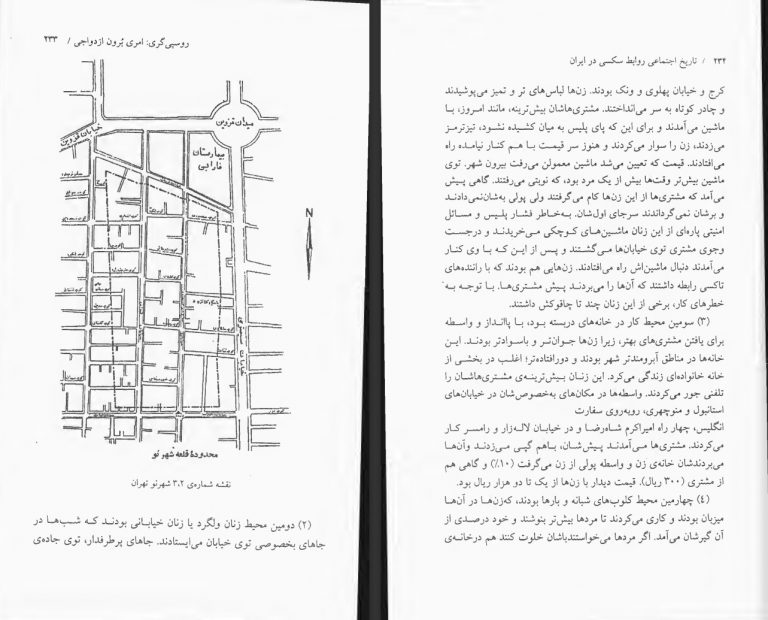 ۲۳۲ / تاریخ اجتماعی روابط سکسی در ایران
کرج و خیابان پهلوی و ونک بودند. زن‌ها لباس‌های تر و تمیز می‌پوشیدند
و چادر کوتاه به سر می‌انداختند. مشتری‌هاشان بیش‌ترینه، مانند امروز، با
ماشین می‌آمدند و برای این که پای پلیس به میان کشیده نشود، تیزترمز
می‌زدند، زن را سوار می‌کردند و هنوز سر قیمت با هم کنار نیامده راه
می‌افتادند. قیمت که تعیین می‌شد ماشین معمولن می‌رفت بیرون شهر. توی
ماشین بیش‌تر وقت‌ها بیش از یک مرد بود، که نوبتی می‌رفتند. گاهی پیش
می‌آمد که مشتری‌ها از این زن‌ها کام می‌گرفتند ولی پولی به‌شان‌نمی‌دادند
و برشان نمی‌گرداندند سرجای اول‌شان. به‌خاطر فشار پلیس و مسائل
امنیتی پاره‌ای از این زنان ماشین‌های کوچکی می‌خریدند و درجست
وجوی مشتری توی خیابان‌ها می‌گشتند و پس از این که با وی کنار
می‌آمدند دنبال ماشین‌اش راه می‌افتادند. زن‌هایی هم بودند که با راننده‌های
تاکسی رابطه داشتند که آن‌ها را می‌بردند پیش مشتری‌ها. با توجه به
خطرهای کار، برخی از این زنان چند تا چاقوکش داشتند.
(۳) سومین محیط کار در خانه‌های دربسته بود، با پاانداز و واسطه
برای یافتن مشتری‌های بهتر، زیرا زن‌ها جوان‌تر و باسوادتر بودند. این
خانه‌ها در مناطق آبرومندتر شهر بودند و دورافتاده‌تر؛ اغلب در بخشی از
خانه خانواده‌ای زندگی می‌کرد. این زنان بیش‌ترینه‌ی مشتری‌هاشان را
تلفنی جور می‌کردند. واسطه‌ها در مکان‌های به‌خصوص‌شان در خیابان‌های
استانبول و منوچهری، روبه‌روی سفارت
انگلیس، چهار راه امیراکرم شاه‌رضا و در خیابان لاله‌زار و رامسر کار
می‌کردند. مشتری‌ها می‌آمدند پیش‌شان، باهم گپی می‌زدند وآن‌ها
می‌بردندشان خانه‌ی زن و واسطه پولی از زن می‌گرفت (۱۰٪) و گاهی هم
از مشتری (۳۰۰ ریال). قیمت دیدار با زن‌ها از یک تا دو هزار ریال بود.
(٤) چهارمین محیط کلوب‌های شبانه و بارها بودند، که‌زن‌ها در آن‌ها
میزبان بودند و کاری می‌کردند تا مردها بیش‌تر بنوشند و خود درصدی از
آن گیرشان می‌آمد. اگر مردها می‌خواستندباشان خلوت کنند هم درخانه‌ی
روسپی‌گری: امری بُرون ازدواجی / ۲۳۳
میدان قزوین
خیابان قزوین
بیمارستان
فارابی
N
محدودهٔ قلعه شهر نو
نقشه شماره‌ی ۳.۲ شهرنو تهران
(۲) دومین محیط زنان ولگرد یا زنان خیابانی بودند که شب‌ها در
جاهای بخصوصی توی خیابان می‌ایستادند. جاهای پرطرفدار، توی جاده‌ی